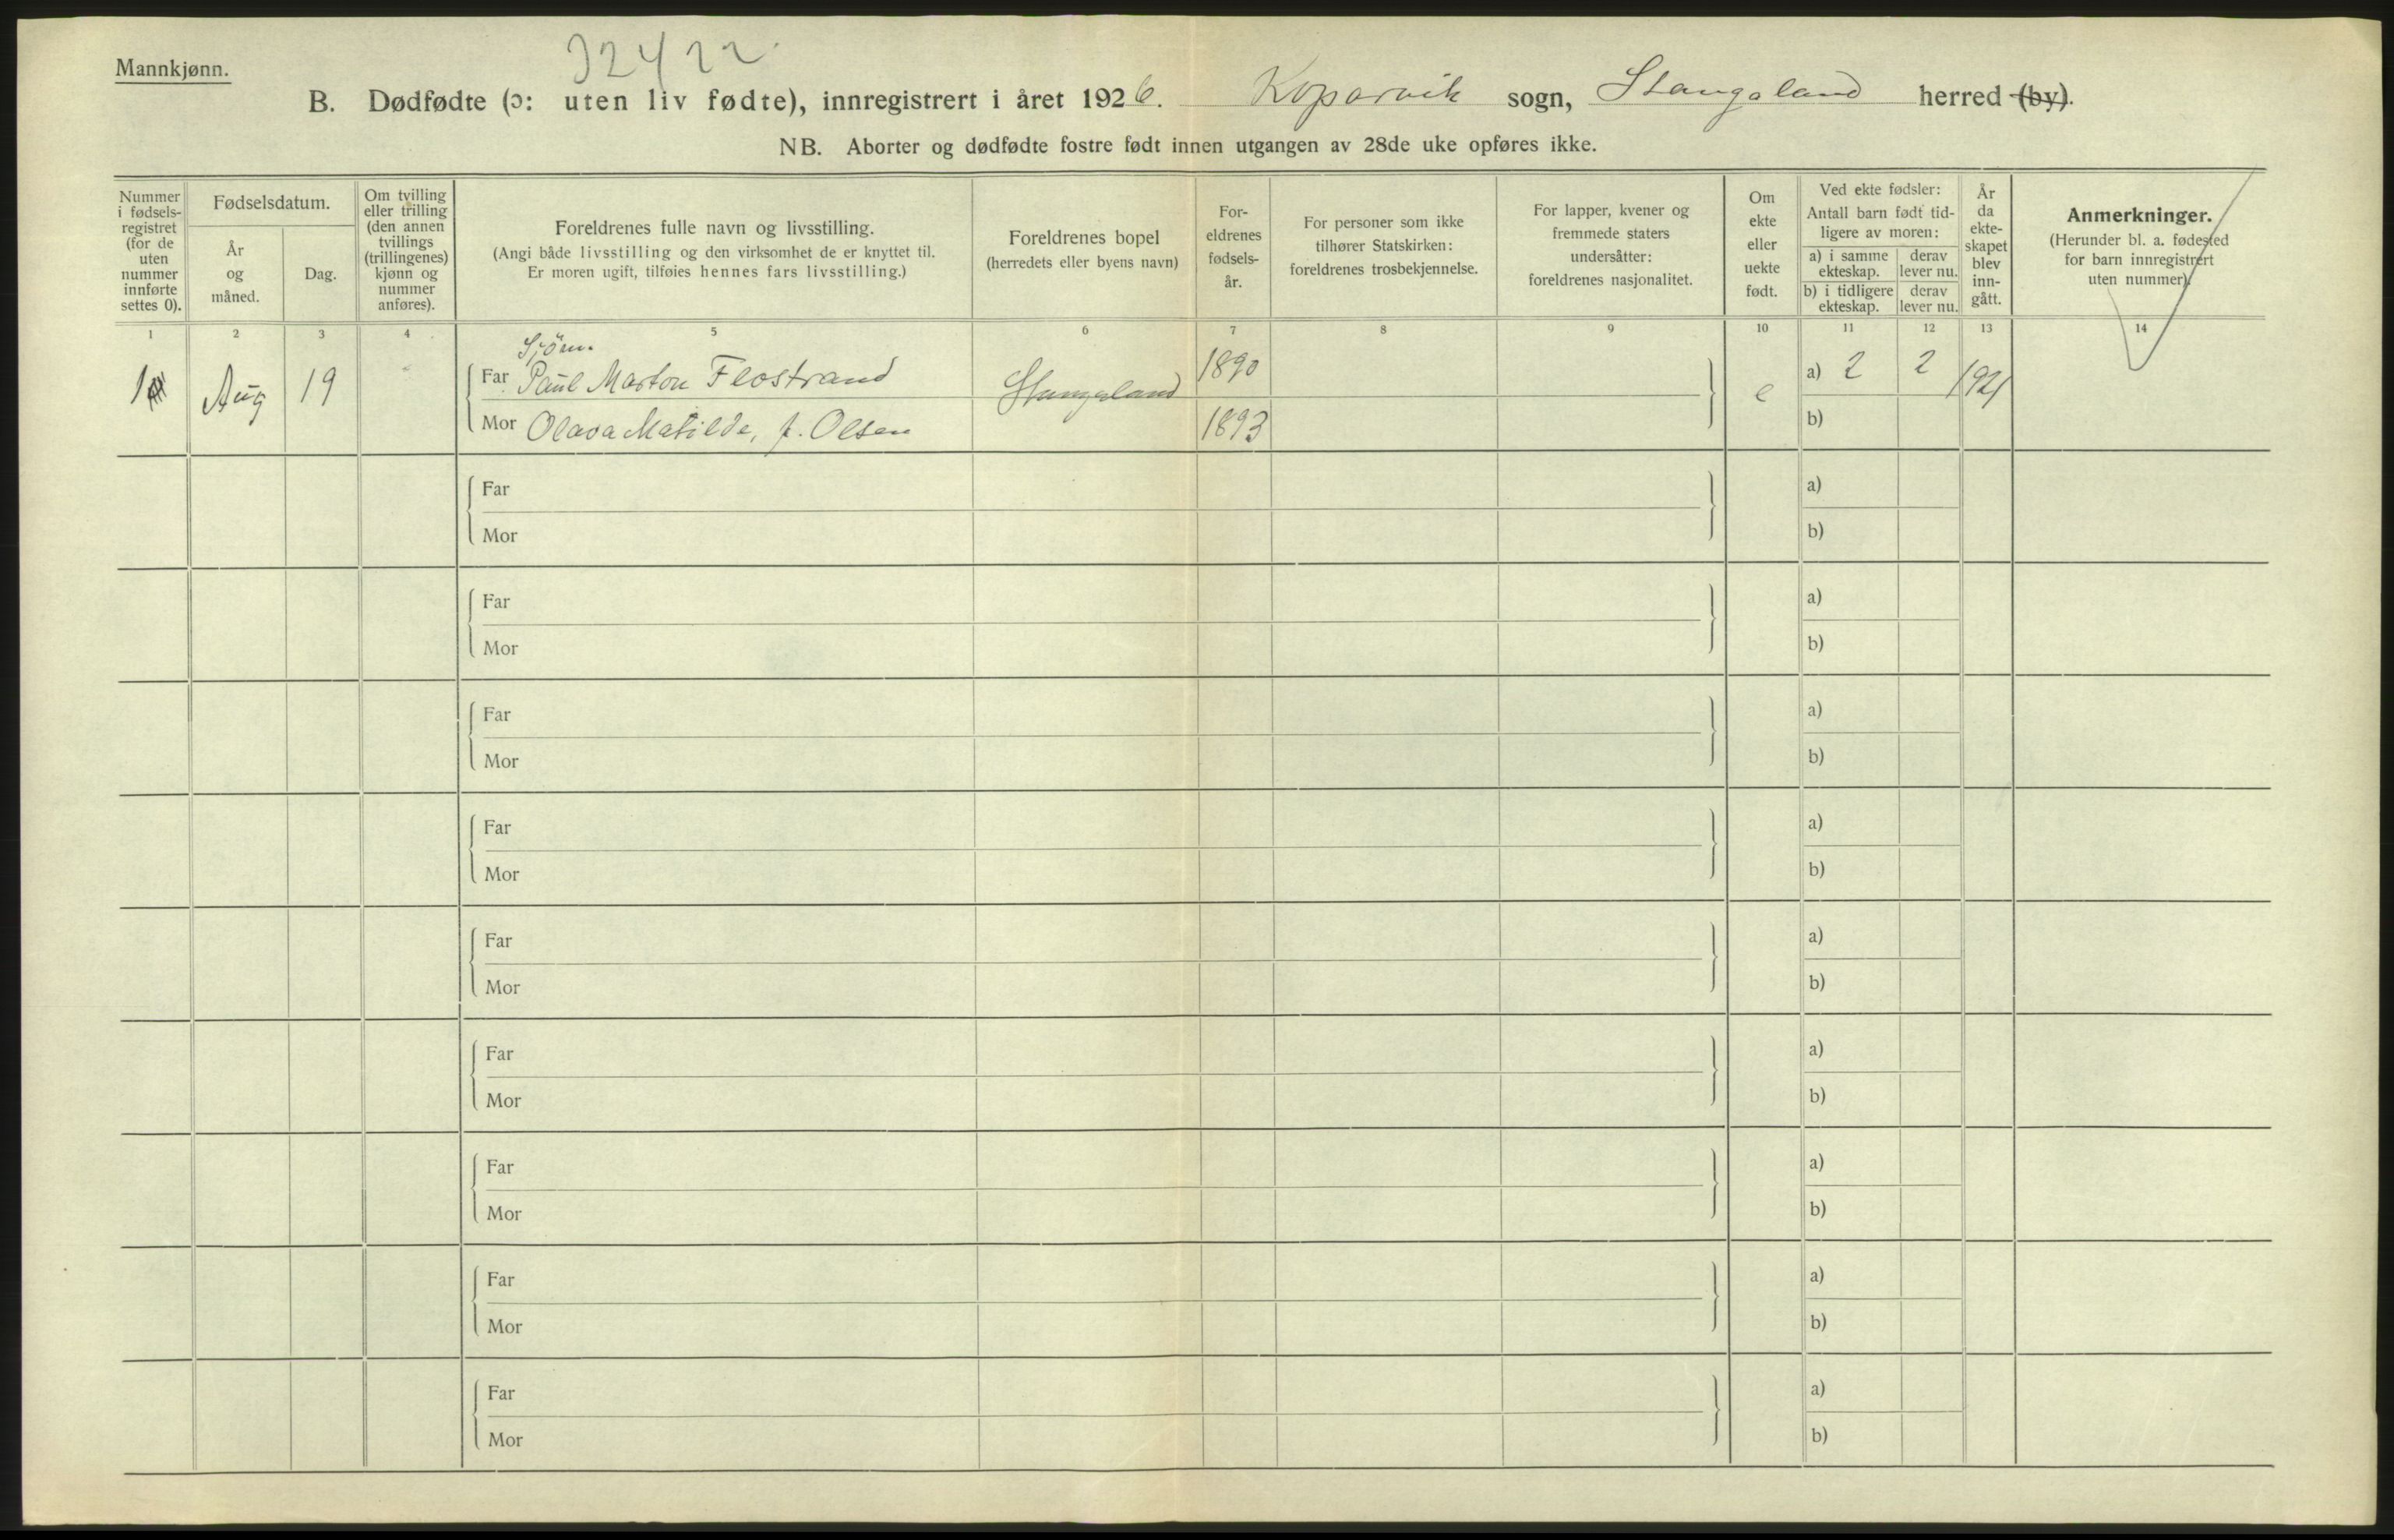 Mannkjønn.
32422
B. Dødfødte (ɔ: uten liv fødte), innregistrert i året 1926. Kopervik sogn, Stangaland herred (by).
NB. Aborter og dødfødte fostre født innen utgangen av 28de uke opføres ikke.
Nummer i fødsels-registret (for de uten nummer innførte settes 0).
Fødselsdatum.
År og måned.
Dag.
Om tvilling eller trilling (den annen tvillings (trillingenes) kjønn og nummer anføres).
Foreldrenes fulle navn og livsstilling.
(Angi både livsstilling og den virksomhet de er knyttet til.
Er moren ugift, tilføies hennes fars livsstilling.)
Foreldrenes bopel
(herredets eller byens navn)
For-eldrenes fødsels-år.
For personer som ikke tilhører Statskirken: foreldrenes trosbekjennelse.
For lapper, kvener og fremmede staters undersåtter: foreldrenes nasjonalitet.
Om ekte eller uekte født.
Ved ekte fødsler:
Antall barn født tid-ligere av moren:
a) i samme ekteskap.
derav lever nu.
b) i tidligere ekteskap.
derav lever nu.
År da ekte-skapet blev inn-gått.
Anmerkninger.
(Herunder bl. a. fødested for barn innregistrert uten nummer).
1 2 3 4 5 6 7 8 9 10 11 12 13 14
Sjöm.
1 Aug 19 Far Paul Marton Flostrand Stangaland 1890 e a) 2 2 1921
Mor Olava Matilde, f. Olsen 1893 b)
Far a)
Mor b)
Far a)
Mor b)
Far a)
Mor b)
Far a)
Mor b)
Far a)
Mor b)
Far a)
Mor b)
Far a)
Mor b)
Far a)
Mor b)
Far a)
Mor b)